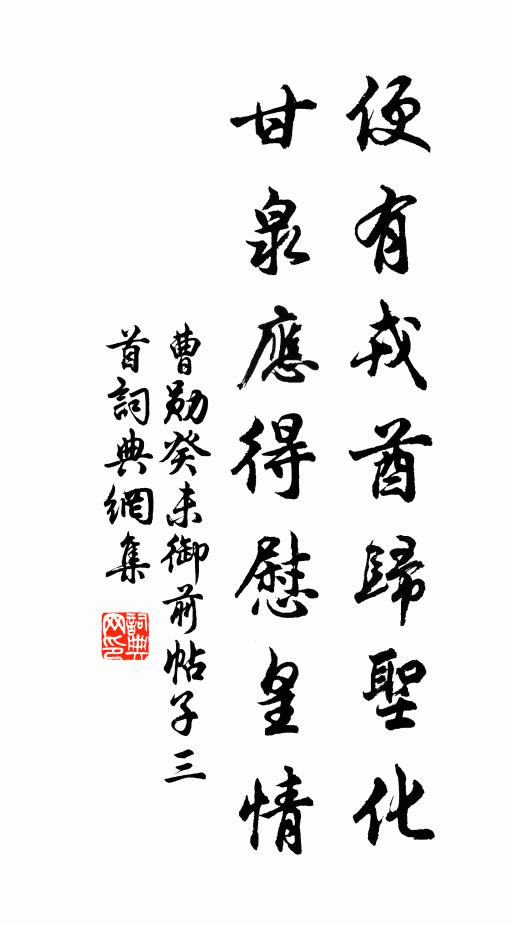 便有戎酋歸聖化
甘泉應得慰皇情
曹勛癸未御前帖子三
首詞典網集
詞典
网印